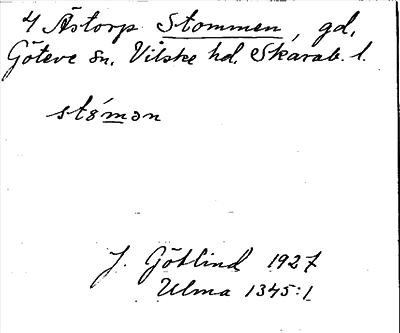 4 Åstorp Stommen, gd.
Göteve sn. Vilske hd. Skarab. l.
stå´mən
J. Götlind 1927
Ulma 1345:1